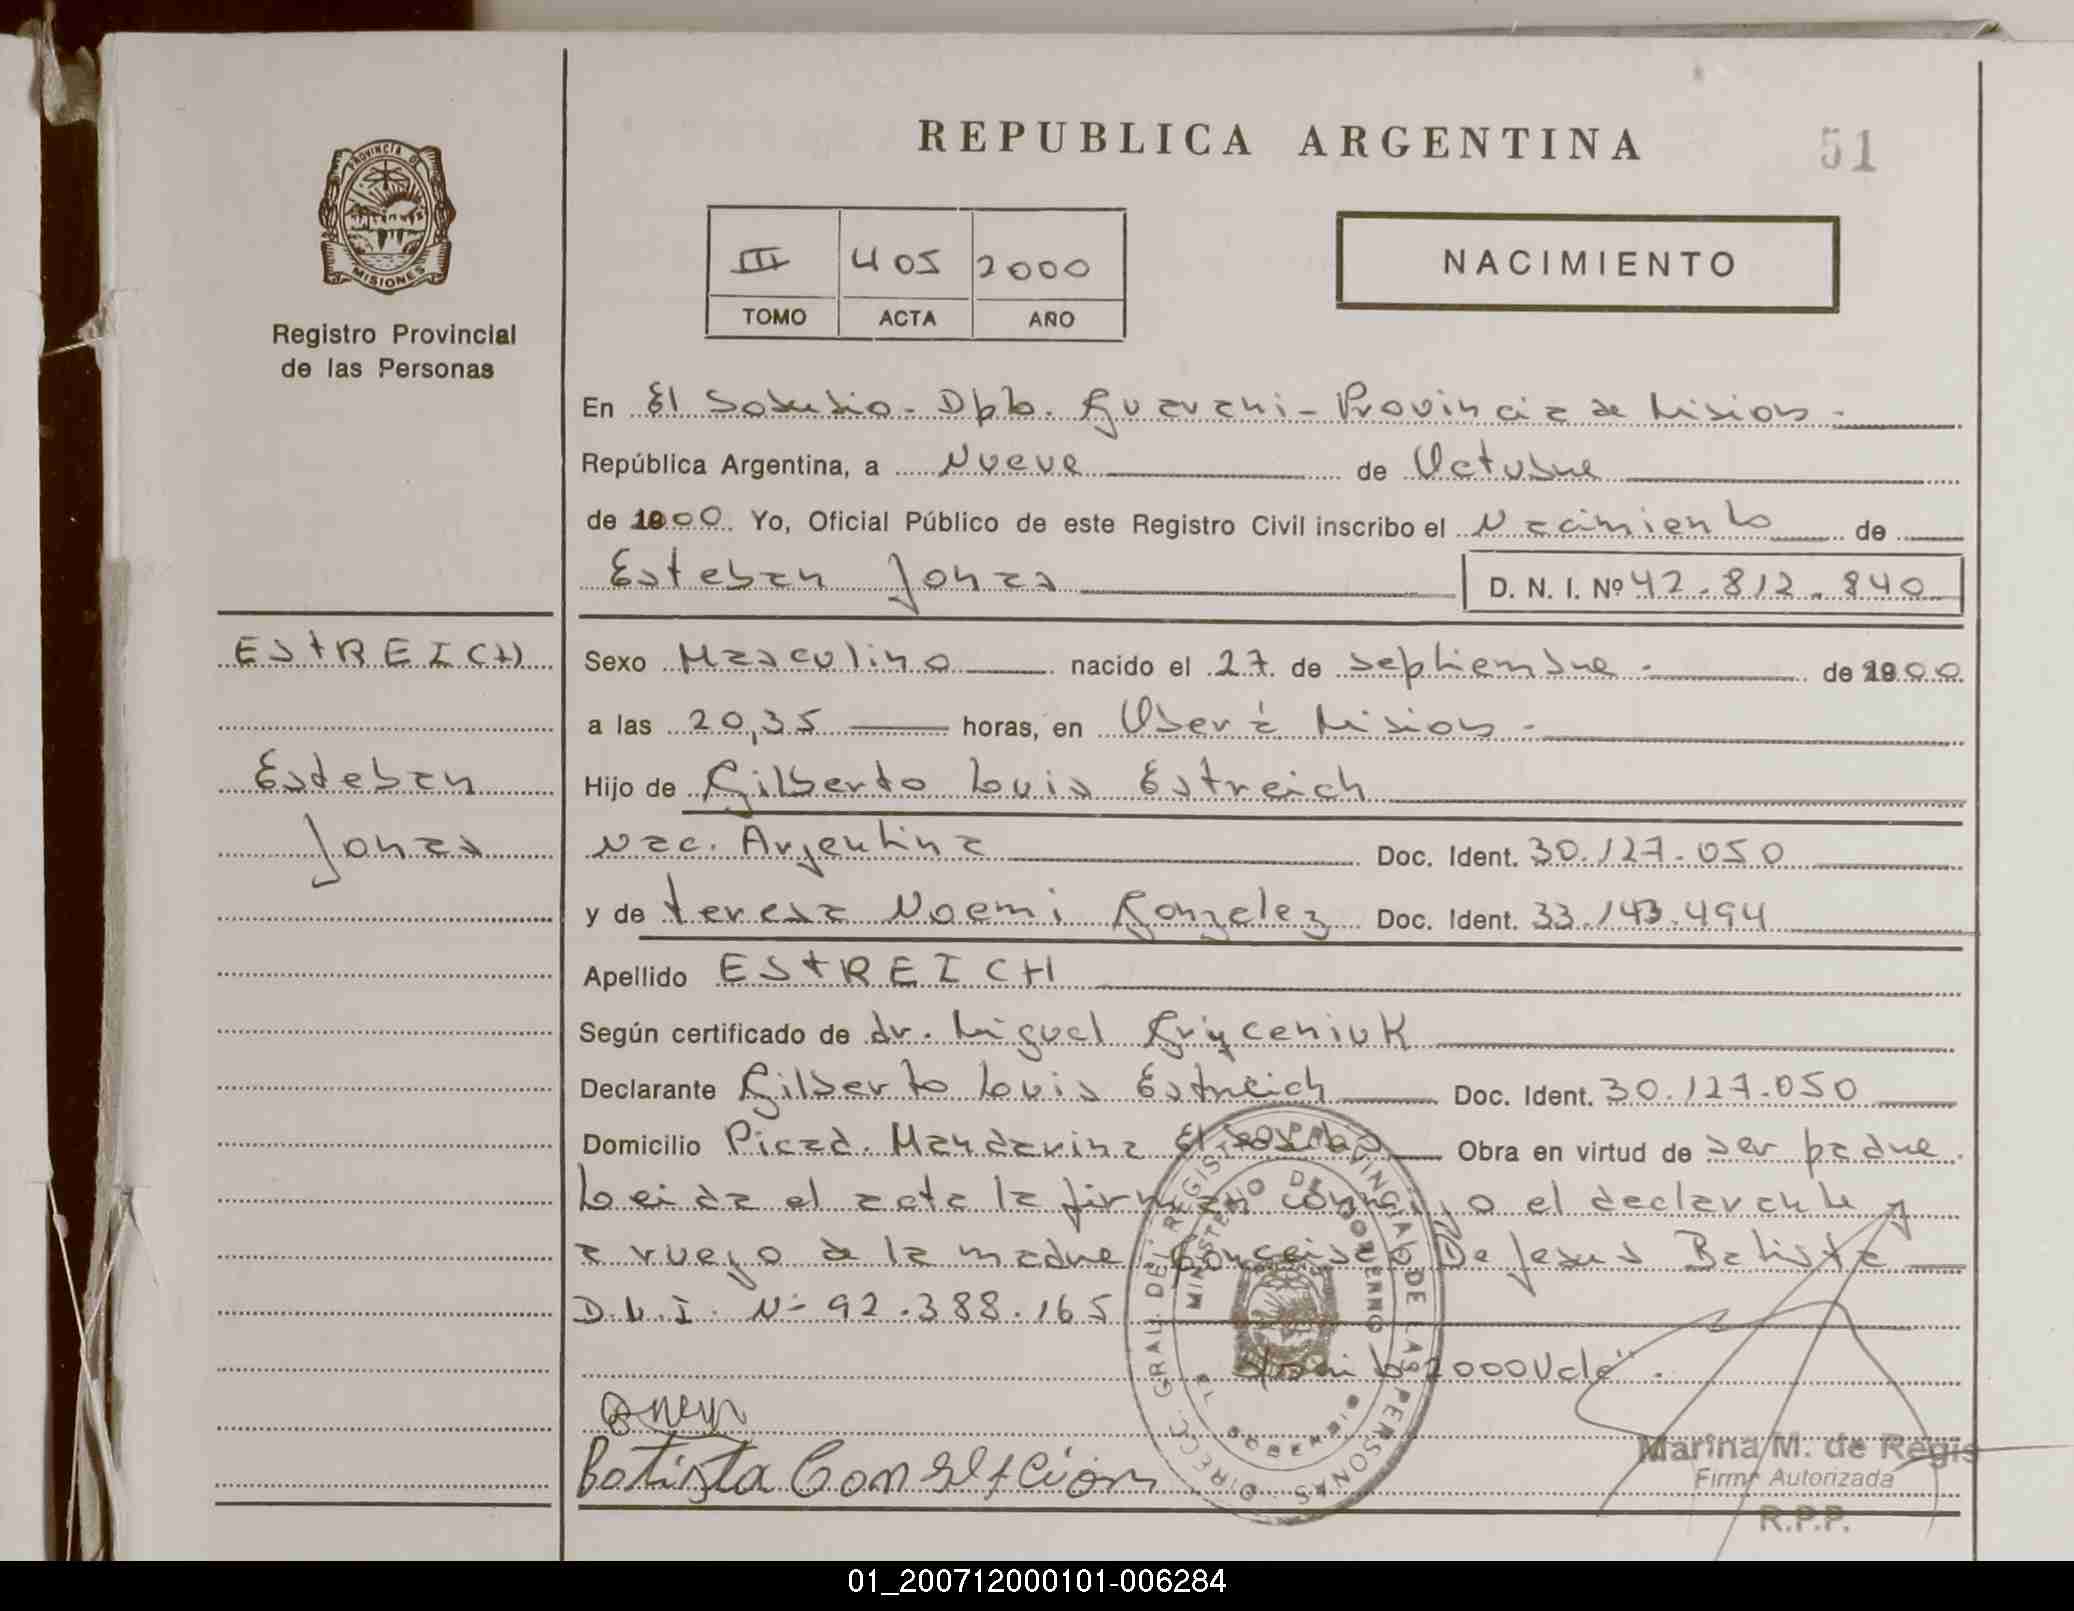 REPUBLICA ARGENTINA
51
PROVINCIA DE MISIONES
Registro Provincial
de las Personas
III 405 2000
TOMO ACTA AÑO
NACIMIENTO
En El Soberbio - Dpto. Guarani - Provincia de Misiones -
República Argentina, a Nueve de Octubre
de 2000 Yo, Oficial Público de este Registro Civil inscribo el Nacimiento de
Esteban Jonas D. N. I. Nº 42.812.840
ESTREICH
Esteban
Jonas
Sexo Masculino nacido el 27 de septiembre - de 2000
a las 20,35 horas, en Oberá Misiones -
Hijo de Gilberto Luis Estreich
Nac. Argentina Doc. Ident. 30.127.050
y de teresa Noemi Gonzalez Doc. Ident. 33.143.494
Apellido ESTREICH
Según certificado de dr. Miguel
Declarante Gilberto Luis Estreich Doc. Ident. 30.127.050
Domicilio Picad. Mandarina El Soberbio Obra en virtud de ser padre
Leida el acta la firman conmigo el declarante y
a ruego de la madre Conceisao De Jesus Batista
D.N.I. Nº 92.388.165
2000 Vale".
Batista
DIRECC. GRAL. DEL REGISTRO PROVINCIAL DE LAS PERSONAS
MINISTERIO DE GOBIERNO
EL SOBERBIO
Marina M. de Regis
Firma Autorizada
R.P.P.
01_200712000101-006284